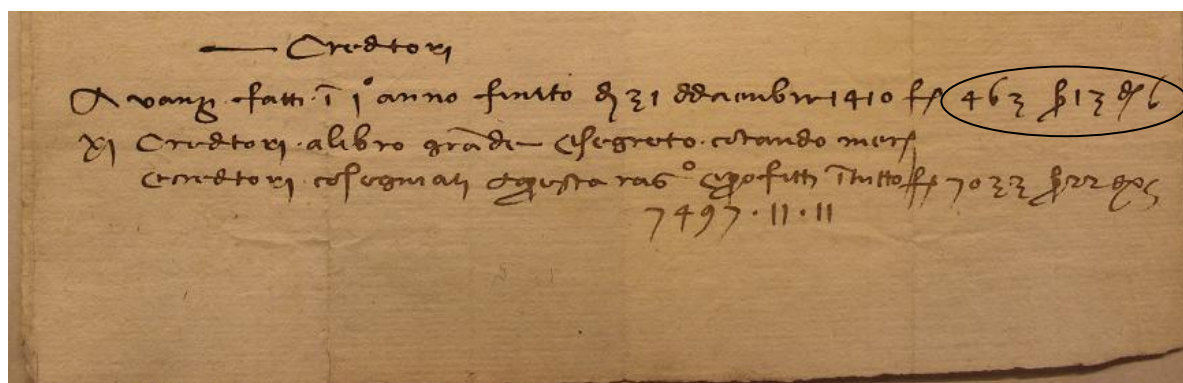 Creditori
Avanzi fatti ī 1° anno finito dj 31 ddiciembre 1410 f 463 s 13 d 6
XI Creditori a libro grāde e segreto
e creditori cosegniati questa rag° e profitti ī tutto f 7033 s 22 d 5
7497 · 11 · 11